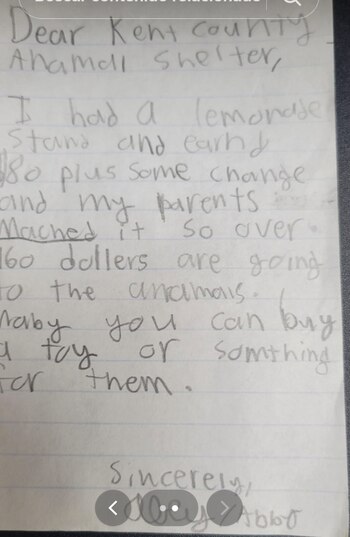 Dear Kent County
Anamall Shelter,
I had a lemonade
Stand and earnd
$80 plus some change
and my parents
Mached it so over
160 dollers are going
to the anamals.
Maby you can buy
a toy or somthing
for them.
Sincerely,